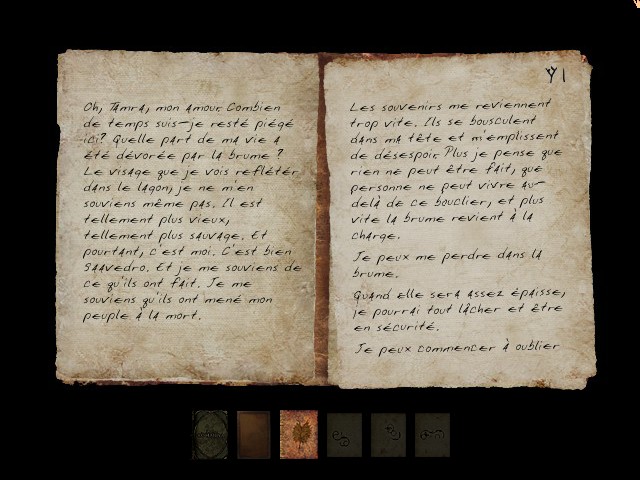 Oh, Tamra, mon amour. Combien
de temps suis-je resté piégé
ici? Quelle part de ma vie a
été dévorée par la brume ?
Le visage que je vois reflété
dans le lagon, je ne m'en
souviens même pas. Il est
tellement plus vieux,
tellement plus sauvage. Et
pourtant, c'est moi. C'est bien
Saavedro. Et je me souviens de
ce qu'ils ont fait. Je me
souviens qu'ils ont mené mon
peuple à la mort.
Les souvenirs me reviennent
trop vite. Ils se bousculent
dans ma tête et m'emplissent
de désespoir. Plus je pense que
rien ne peut être fait, que
personne ne peut vivre au-
delà de ce bouclier, et plus
vite la brume revient à la
charge.
Je peux me perdre dans la
brume.
Quand elle sera assez épaisse,
je pourrai tout lâcher et être
en sécurité.
Je peux commencer à oublier